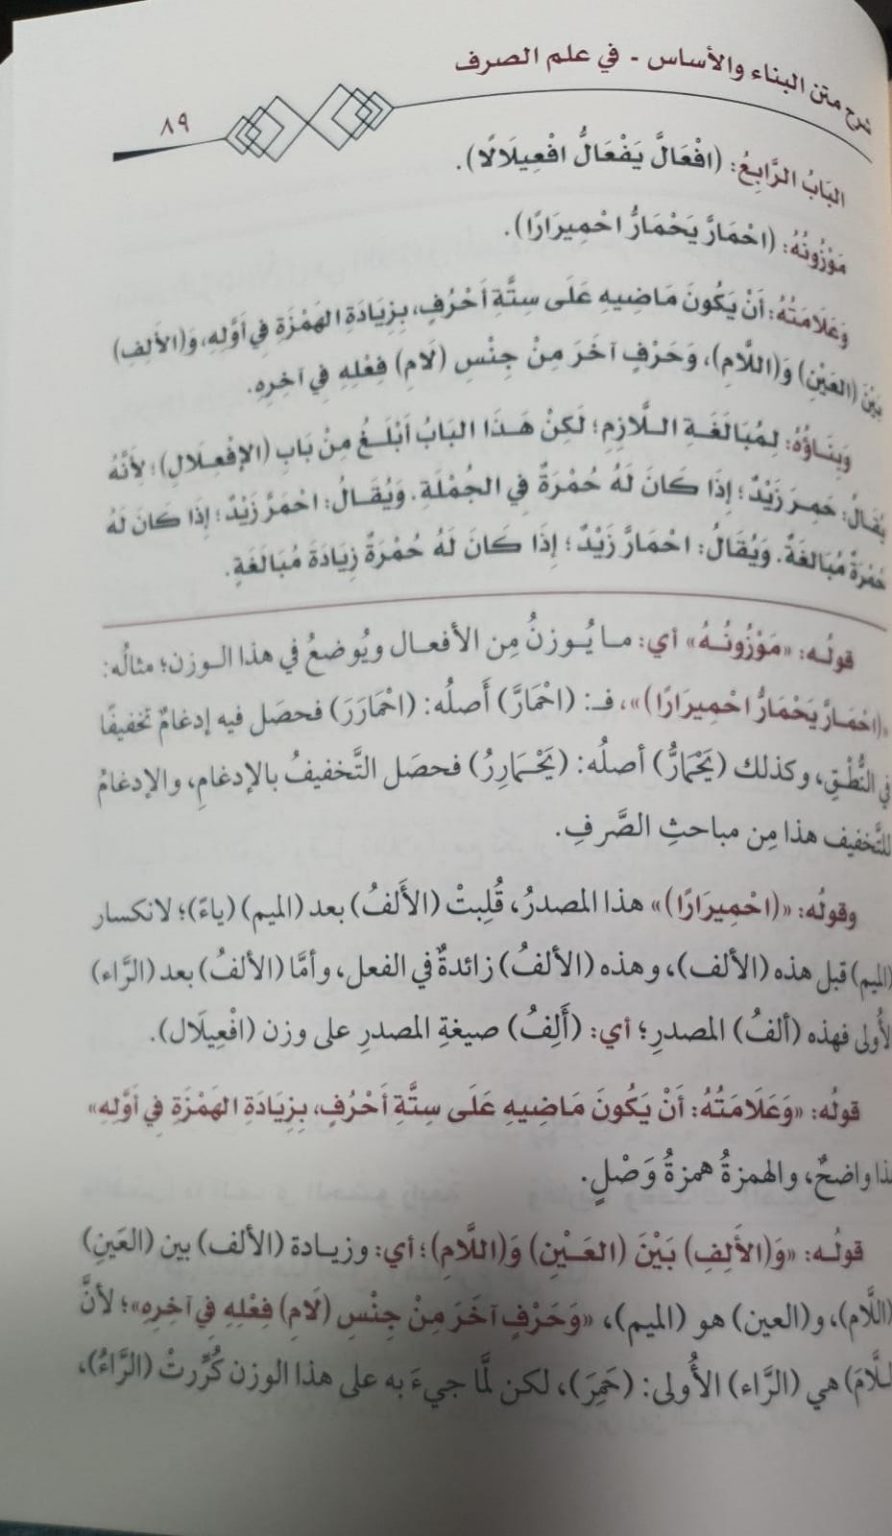 شرح متن البناء والأساس - في علم الصرف
٨٩
البَابُ الرَّابِعُ: (افْعَالَّ يَفْعَالُّ افْعِيلَالًا).
مَوْزُونُهُ: (احْمَارَّ يَحْمَارُّ احْمِيرَارًا).
وَعَلَامَتُهُ: أَنْ يَكُونَ مَاضِيهِ عَلَى سِتَّةِ أَحْرُفٍ، بِزِيَادَةِ الهَمْزَةِ فِي أَوَّلِهِ، وَ(الأَلِفِ)
بَيْنَ (العَيْنِ) وَ(اللَّامِ)، وَحَرْفٍ آخَرَ مِنْ جِنْسِ (لَامِ) فِعْلِهِ فِي آخِرِهِ.
وَبِنَاؤُهُ: لِمُبَالَغَةِ اللَّازِمِ؛ لَكِنْ هَذَا البَابُ أَبْلَغُ مِنْ بَابِ (الإِفْعِلَالِ)؛ لِأَنَّهُ
يُقَالُ: حَمِرَ زَيْدٌ؛ إِذَا كَانَ لَهُ حُمْرَةٌ فِي الجُمْلَةِ. وَيُقَالُ: احْمَرَّ زَيْدٌ؛ إِذَا كَانَ لَهُ
حُمْرَةٌ مُبَالَغَةٌ. وَيُقَالُ: احْمَارَّ زَيْدٌ؛ إِذَا كَانَ لَهُ حُمْرَةٌ زِيَادَةَ مُبَالَغَةٍ.
قولُه: «مَوْزُونُهُ» أي: ما يُوزنُ مِن الأفعال ويُوضعُ في هذا الوزن؛ مثالُه:
«(احْمَارَّ يَحْمَارُّ احْمِيرَارًا)»، فـ: (احْمَارَّ) أَصلُه: (احْمَارَرَ) فحصَل فيه إدغامٌ تخفيفًا
في النُّطْقِ، وكذلك (يَحْمَارُّ) أصلُه: (يَحْمَارِرُ) فحصَل التَّخفيفُ بالإدغامِ، والإدغامُ
للتَّخفيف هذا مِن مباحثِ الصَّرفِ.
وقولُه: «(احْمِيرَارًا)» هذا المصدرُ، قُلِبتْ (الأَلفُ) بعد (الميم) (ياءً)؛ لانكسار
(الميم) قبل هذه (الألف)، وهذه (الألفُ) زائدةٌ في الفعل، وأمَّا (الألفُ) بعد (الرَّاء)
الأُولى فهذه (ألفُ) المصدرِ؛ أي: (أَلِفُ) صيغةِ المصدرِ على وزن (افْعِيلَال).
قولُه: «وَعَلَامَتُهُ: أَنْ يَكُونَ مَاضِيهِ عَلَى سِتَّةِ أَحْرُفٍ، بِزِيَادَةِ الهَمْزَةِ فِي أَوَّلِهِ»
هذا واضحٌ، والهمزةُ همزةُ وَصْلٍ.
قولُه: «وَ(الأَلِفِ) بَيْنَ (العَيْنِ) وَ(اللَّامِ)؛ أي: وزيادة (الألف) بين (العَينِ)
(اللَّام)، و(العين) هو (الميم)، «وَحَرْفٍ آخَرَ مِنْ جِنْسِ (لَامِ) فِعْلِهِ فِي آخِرِهِ»؛ لأنَّ
(اللَّامَ) هي (الرَّاء) الأُولى: (حَمِرَ)، لكن لمَّا جيءَ به على هذا الوزن كُرِّرتْ (الرَّاءُ)،